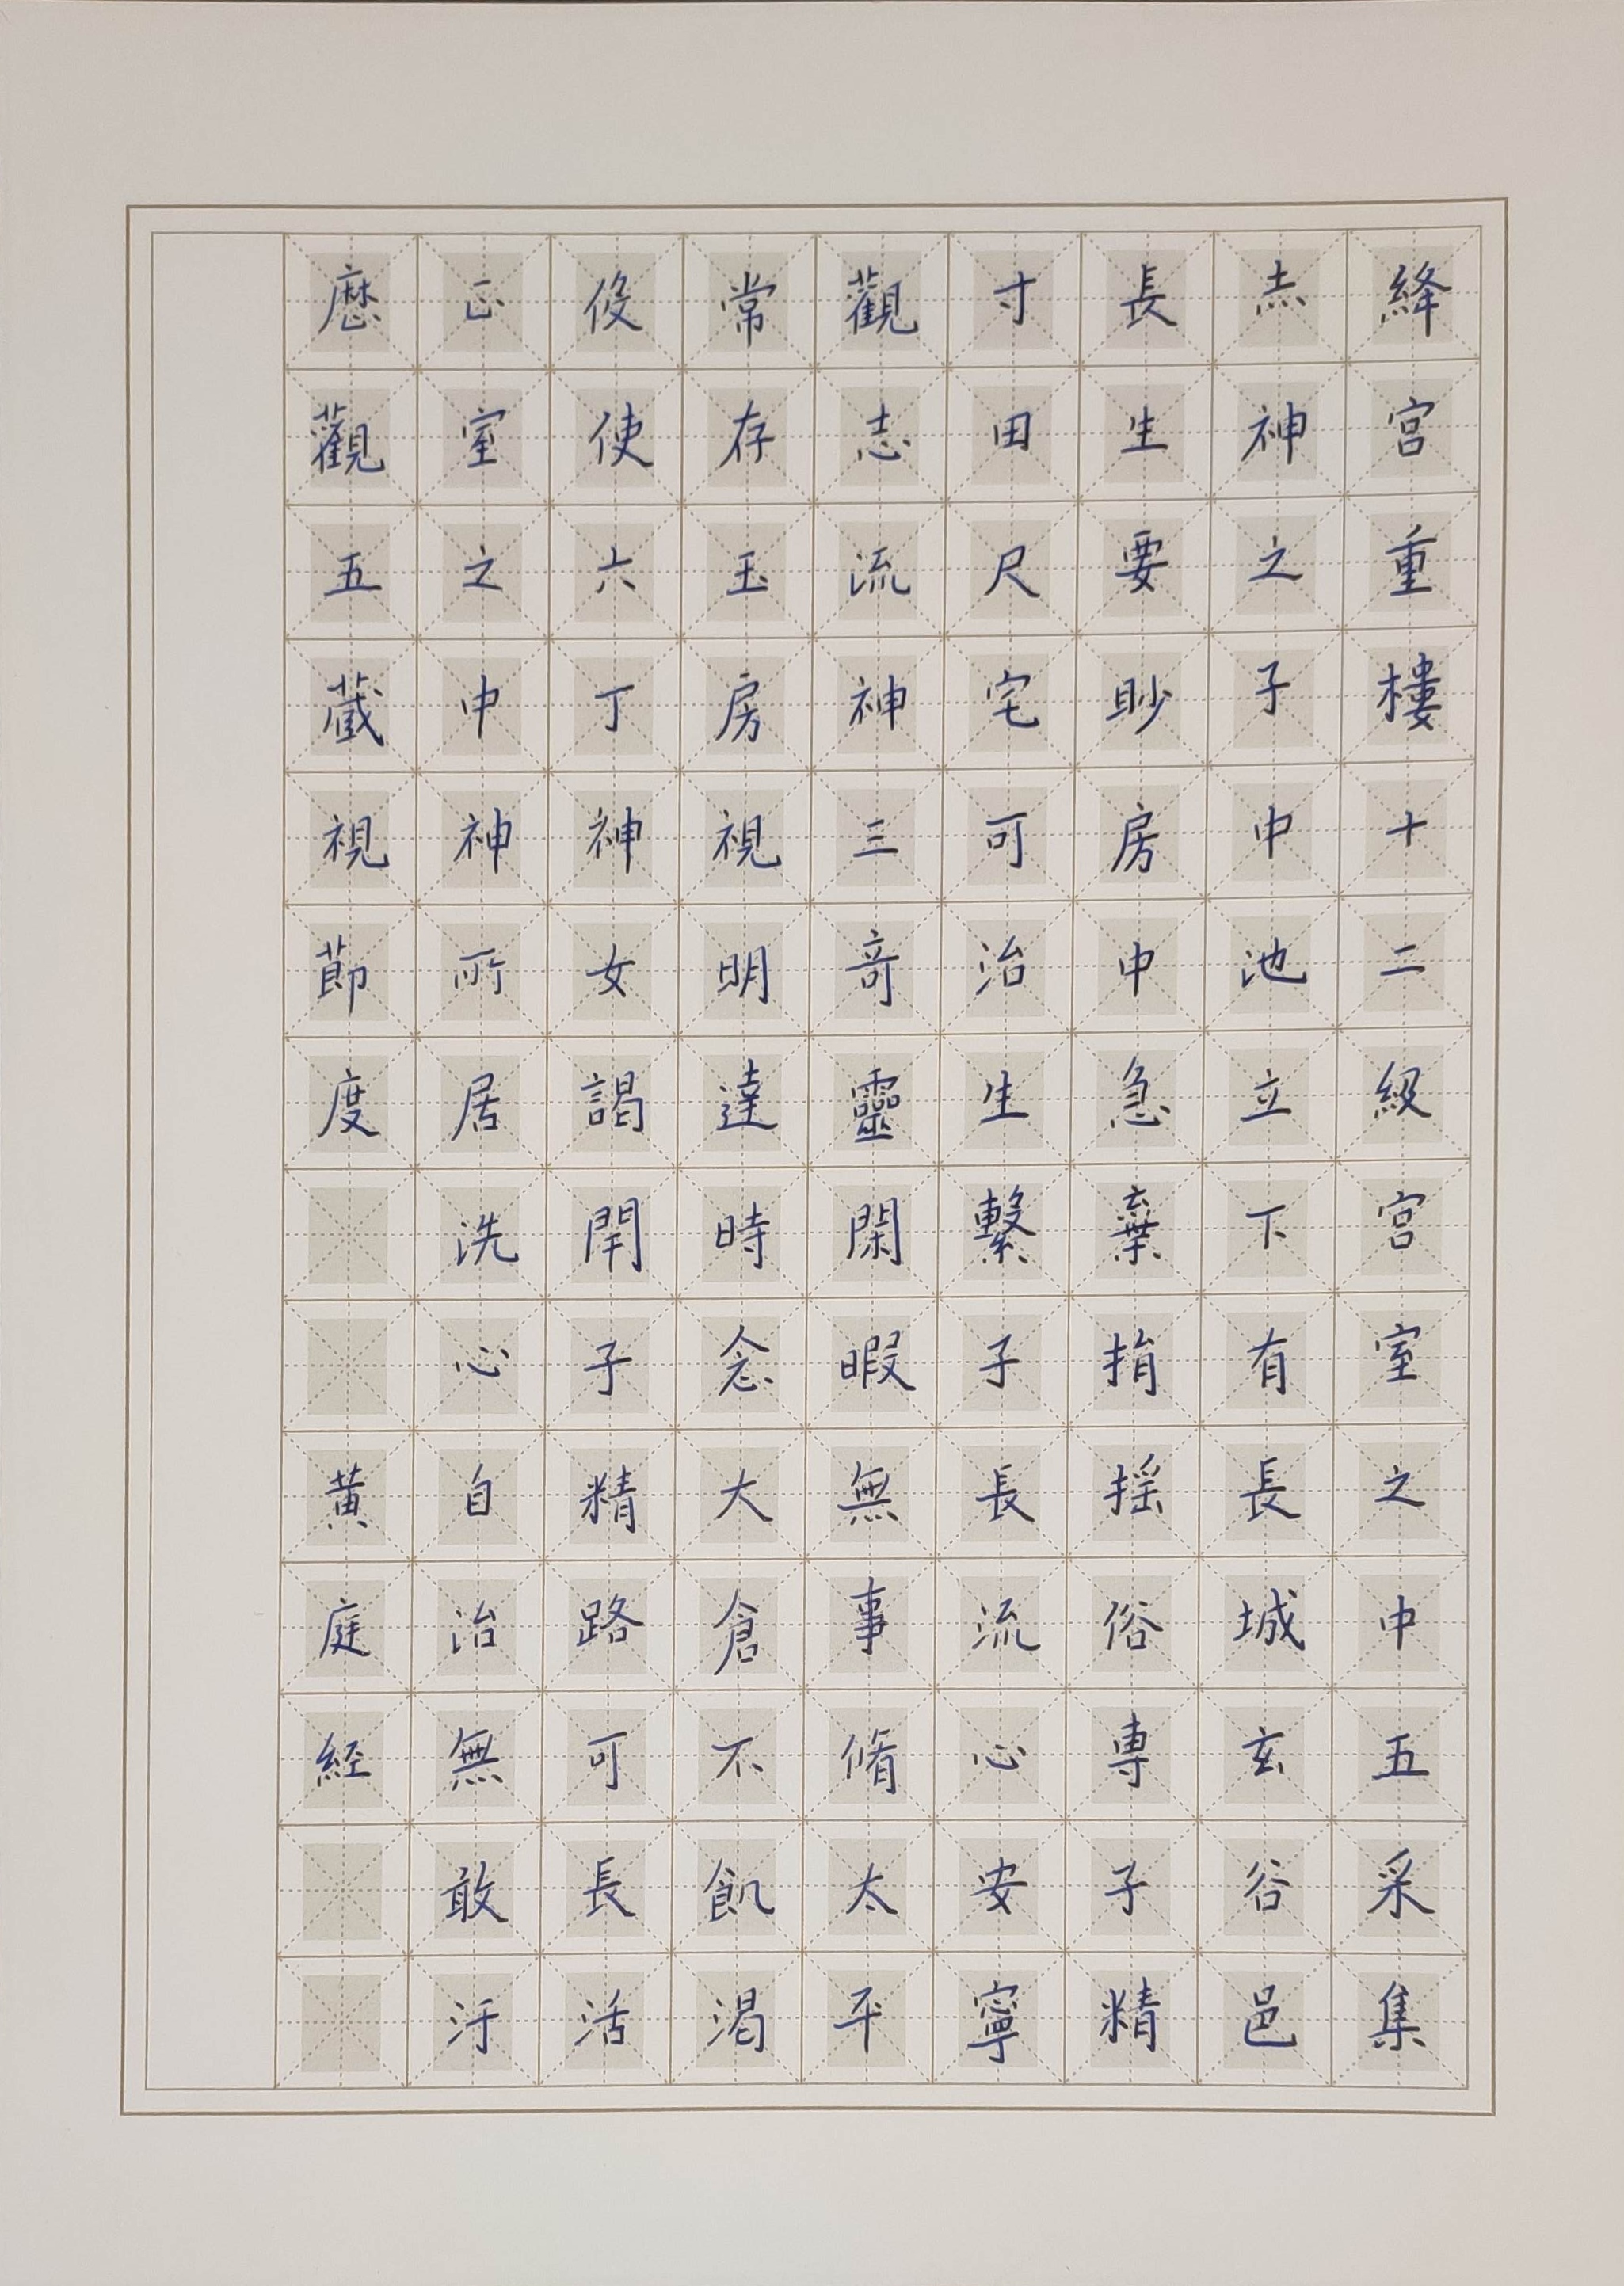 絳宮重樓十二級宮室之中五采集
赤神之子中池立下有長城玄谷邑
長生要眇房中急棄捐搖俗專子精
寸田尺宅可治生繫子長流心安寧
觀志流神三奇靈閑暇無事脩太平
常存玉房視明達時念大倉不飢渴
伇使六丁神女謁閇子精路可長活
正室之中神所居洗心自治無敢汙
歷觀五藏視節度
黃庭経